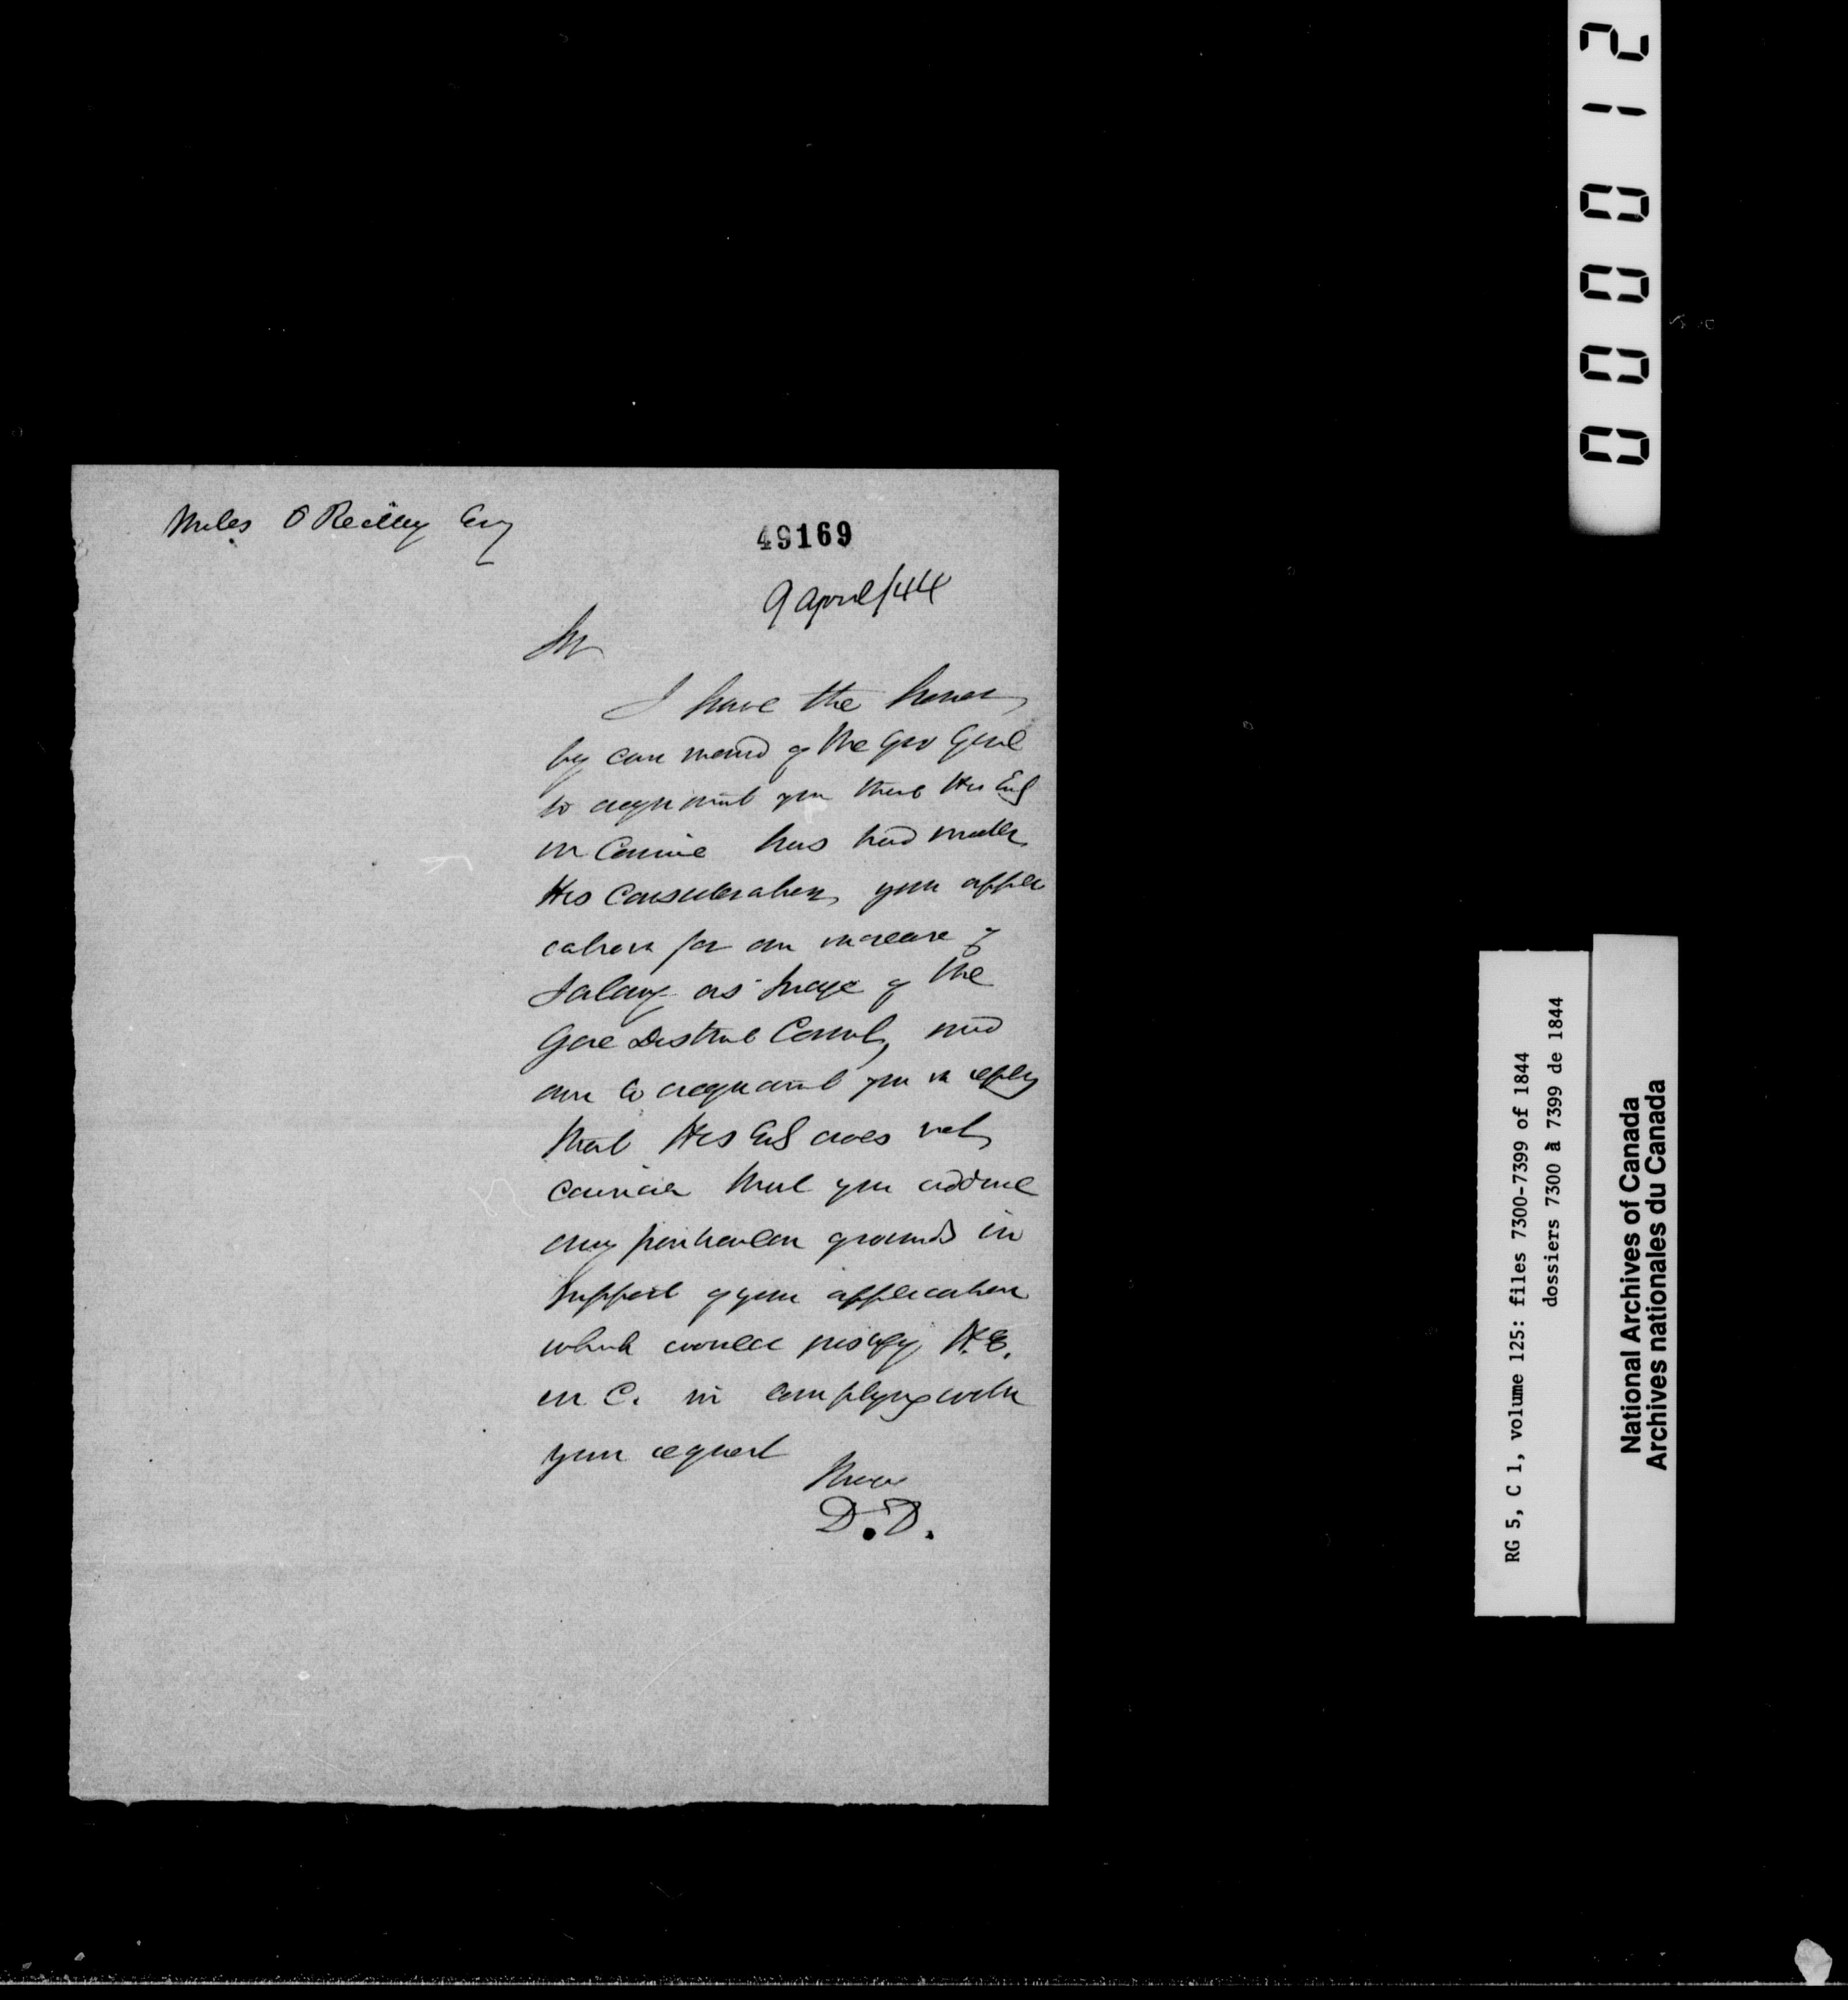 Miles O Reilly Esq
49169
9 April/44
Sir
I have the honor,
by command of the Gov Genl
to acquaint you that His Exl
in Council has had under
His Consideration, your appli
cation for an increase of
Salary as Judge of the
Gore District Court, and
am to acquaint you in reply
that His Exl does not
consider that you adduce
any particular grounds in
support of your application
which would justify H.E.
in C. in complying with
your request
I have
D.D.
RG 5, C 1, volume 125: files 7300-7399 of 1844
dossiers 7300 à 7399 de 1844
National Archives of Canada
Archives nationales du Canada
000012